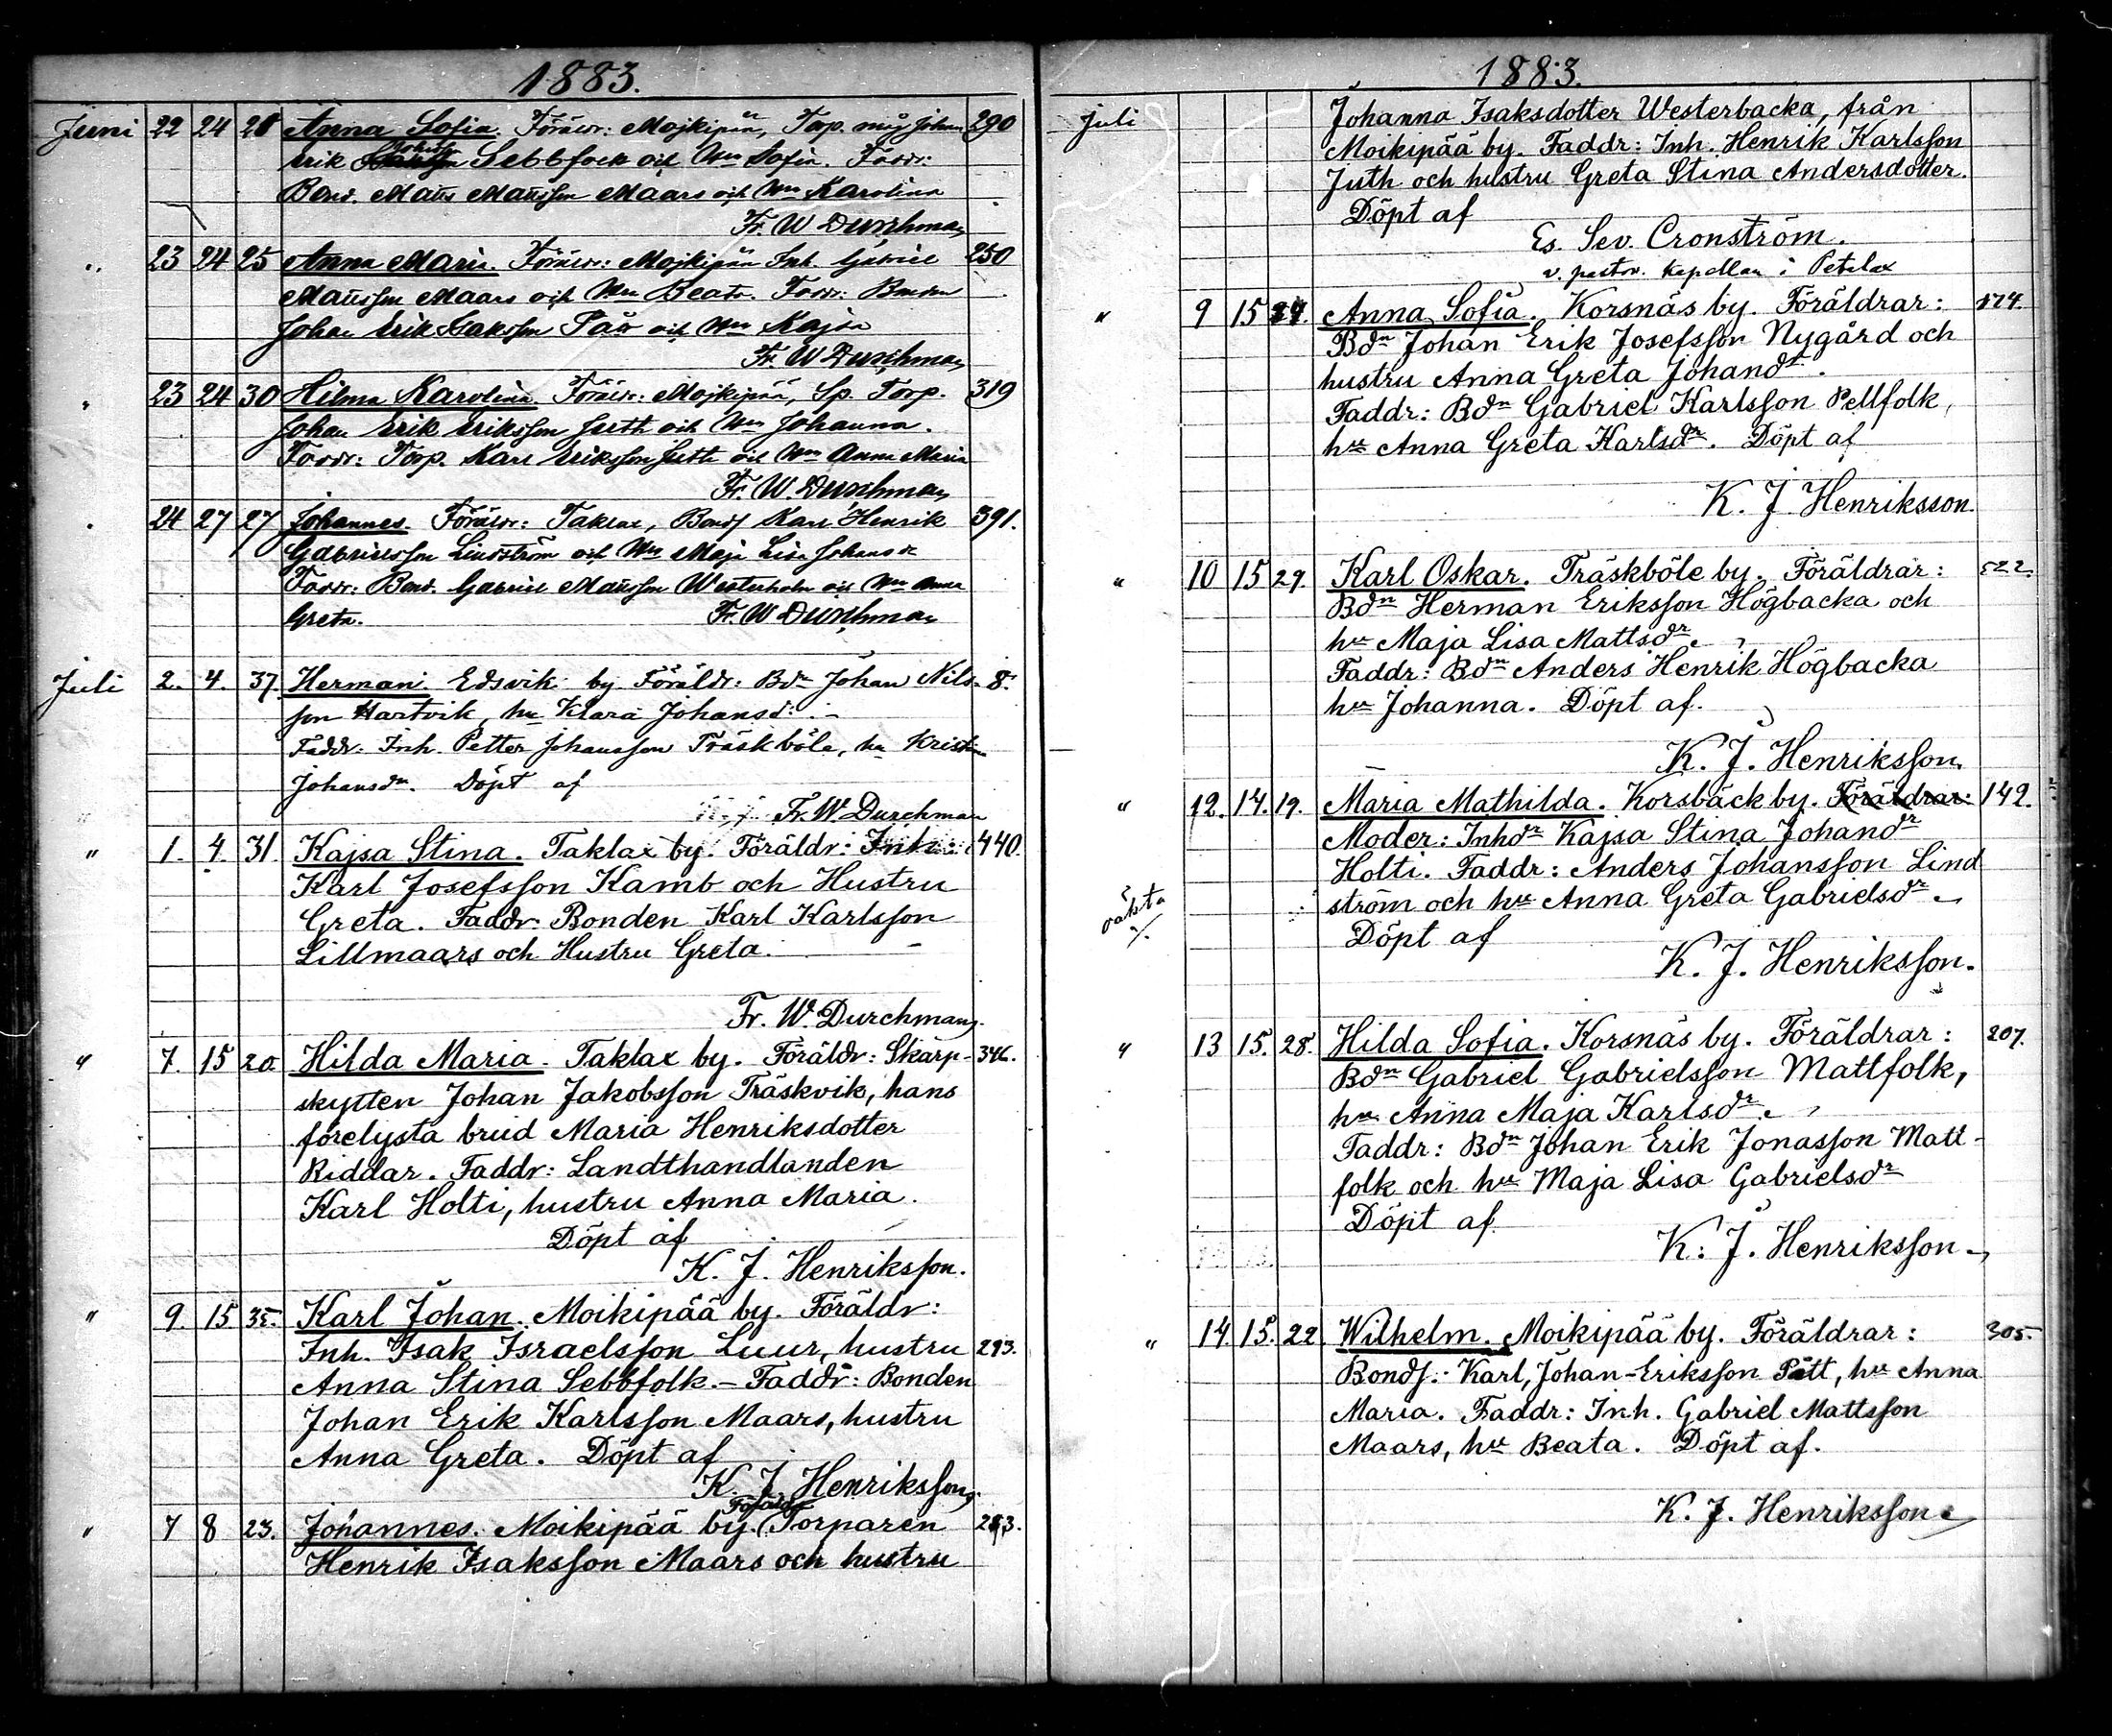 1883.
Juni 22 24 28 Anna Sofia. Föräldr: Mojkipää, Torp. måg Johan 290
Erik Johansson Sebbfolk och Hru Sofia. Faddr:
Bond. Matts Mattsson Maars och Hru Karolina
Fr. W Durchman
" 23 24 25 Anna Maria. Föräldr: Mojkipää Inh. Gabriel 250
Mattsson Maars och Hru Beata. Faddr: Bonden
Johan Erik Isaksson och Hru Kajsa
Fr. W Durchman
" 23 24 30 Hilma Karolina. Föräldr: Mojkipää, Sp. Torp. 319
Johan Erik Eriksson Juth och Hru Johanna.
Faddr: Torp. Karl Eriksson Juth och Hru Anna Maria
Fr. W. Durchman
" 24 27 27 Johannes. Föräldr: Taklax, Bonds Karl Henrik 391.
Gabrielsson Lindström och Hru Maja Lisa Johansdr
Faddr: Bond. Gabriel Mattsson Westerholm och Hru Anna
Greta. Fr. W Durchman
Juli 2. 4. 37. Herman. Edsvik by Föräldr: Bdn Johan Nils- 8.
son Hartvik, hu Klara Johansd:
Faddr. Inh. Petter Johansson Träskböle, hu Kristina
Johansdr. Döpt af
Fr. W. Durchman
" 1. 4. 31. Kajsa Stina. Taklax by. Föräldr: Inh: 440.
Karl Josefsson Kamb och Hustru
Greta. Faddr. Bonden Karl Karlsson
Lillmaars och Hustru Greta.
Fr. W. Durchman
" 7. 15 20 Hilda Maria. Taklax by. Föräldr: Skarp- 346.
skytten Johan Jakobsson Träskvik, hans
förelysta brud Maria Henriksdotter
Riddar. Faddr: Landthandlanden
Karl Holti, hustru Anna Maria.
Döpt af
K. J. Henriksson.
" 9. 15. 35. Karl Johan. Moikipää by. Föräldr:
Inh. Isak Israelsson Luur, hustru 293.
Anna Stina Sebbfolk. – Faddr: Bonden
Johan Erik Karlsson Maars, hustru
Anna Greta. Döpt af
K. J. Henriksson.
Föräldr
" 7 8 23. Johannes. Moikipää by. Torparen
Henrik Isaksson Maars och hustru
1883.
Juli Johanna Isaksdotter Westerbacka, från
Moikipää by. Faddr: Inh. Henrik Karlsson
Juth och hustru Greta Stina Andersdotter.
Döpt af
Es. Sev. Cronström.
v. pastor. kapellan i Petalax
" 9 15 Anna Sofia. Korsnäs by. Föräldrar:
Bdn Johan Erik Josefsson Nygård och
hustru Anna Greta Johandr.
Faddr: Bdn Gabriel Karlsson Pellfolk,
hu Anna Greta Karlsdr. Döpt af
K. J. Henriksson.
" 10 15 29. Karl Oskar. Träskböle by. Föräldrar: 522.
Bdn Herman Eriksson Högbacka och
hu Maja Lisa Mattsdr.
Faddr: Bdn Anders Henrik Högbacka
hu Johanna. Döpt af.
K. J. Henriksson.
" 12. 14. 19. Maria Mathilda. Korsbäck by. Föräldrar: 142.
Moder: Inhdr Kajsa Stina Johandr
Holti. Faddr: Anders Johansson Lind
oäkta ström och hu Anna Greta Gabrielsdr.
Döpt af
K. J. Henriksson.
" 13 15. 28. Hilda Sofia. Korsnäs by. Föräldrar: 207.
Bdn Gabriel Gabrielsson Mattfolk,
hu Anna Maja Karlsdr.
Faddr: Bdn Johan Erik Jonasson Matt-
folk och hu Maja Lisa Gabrielsdr
Döpt af.
K. J. Henriksson.
" 14. 15. 22. Wilhelm. Moikipää by. Föräldrar: 305.
Bonds. Karl, Johan-Eriksson Pått, hu Anna
Maria. Faddr: Inh. Gabriel Mattsson
Maars, hu Beata. Döpt af.
K. J. Henriksson.